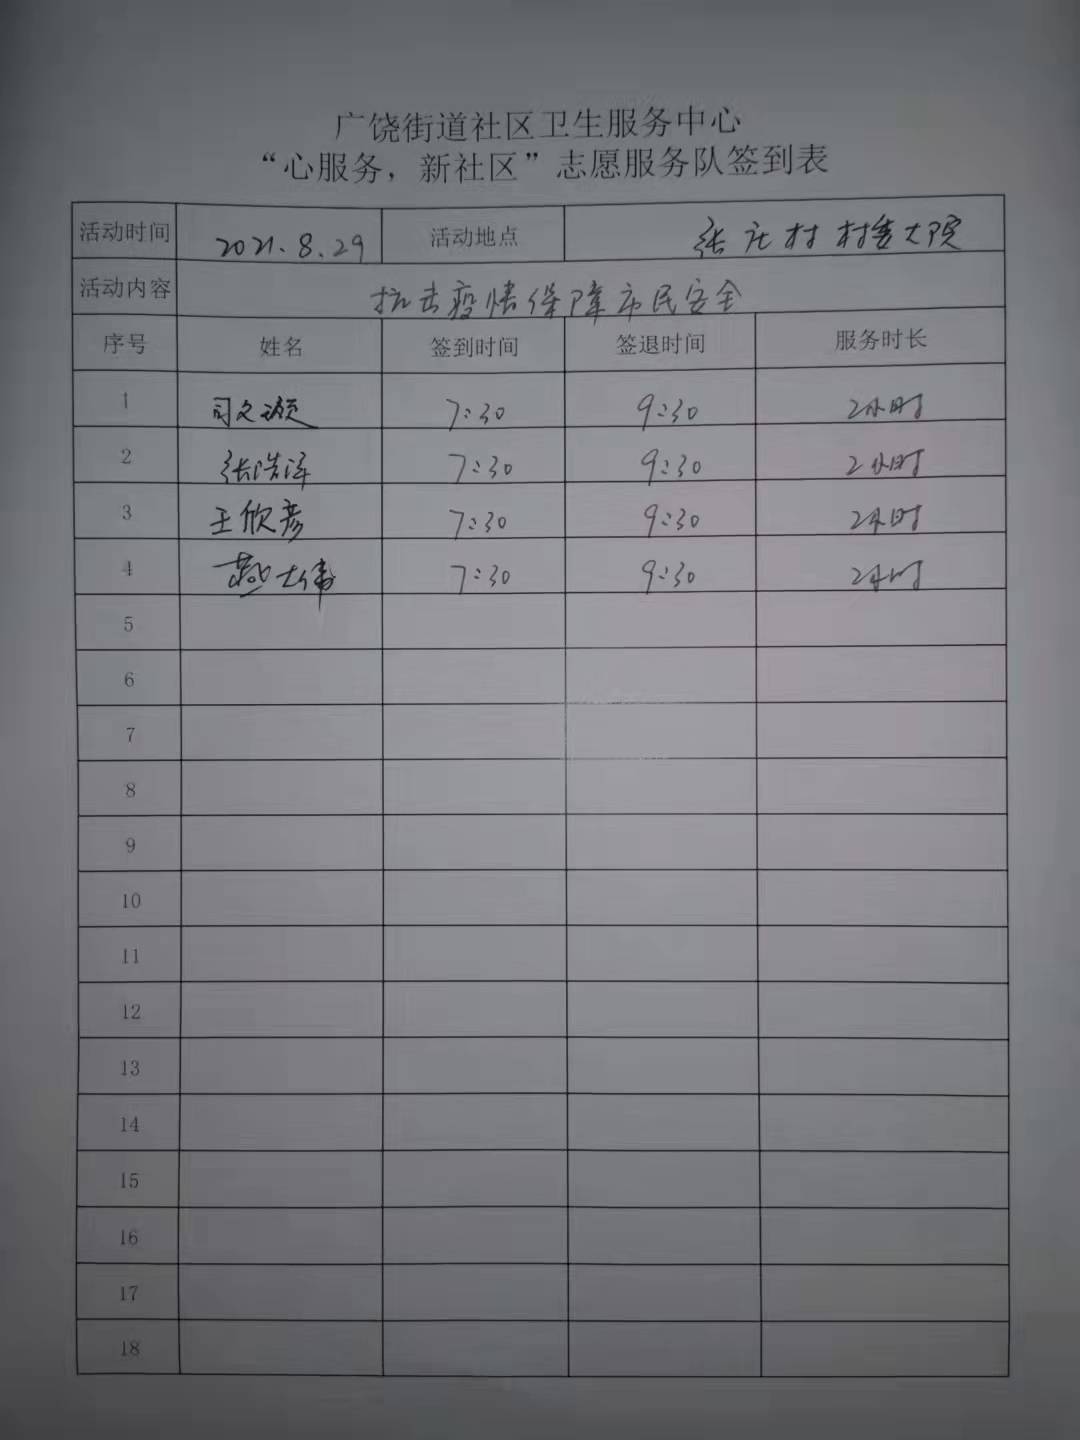 广饶街道社区卫生服务中心
“心服务，新社区”志愿服务队签到表
活动时间 2021.8.29 活动地点 张庄村村委大院
活动内容 抗击疫情保障市民安全
序号 姓名 签到时间 签退时间 服务时长
1 司文颋 7:30 9:30 2小时
2 张浩泽 7:30 9:30 2小时
3 王欣彦 7:30 9:30 2小时
4 燕大伟 7:30 9:30 2小时
5
6
7
8
9
10
11
12
13
14
15
16
17
18